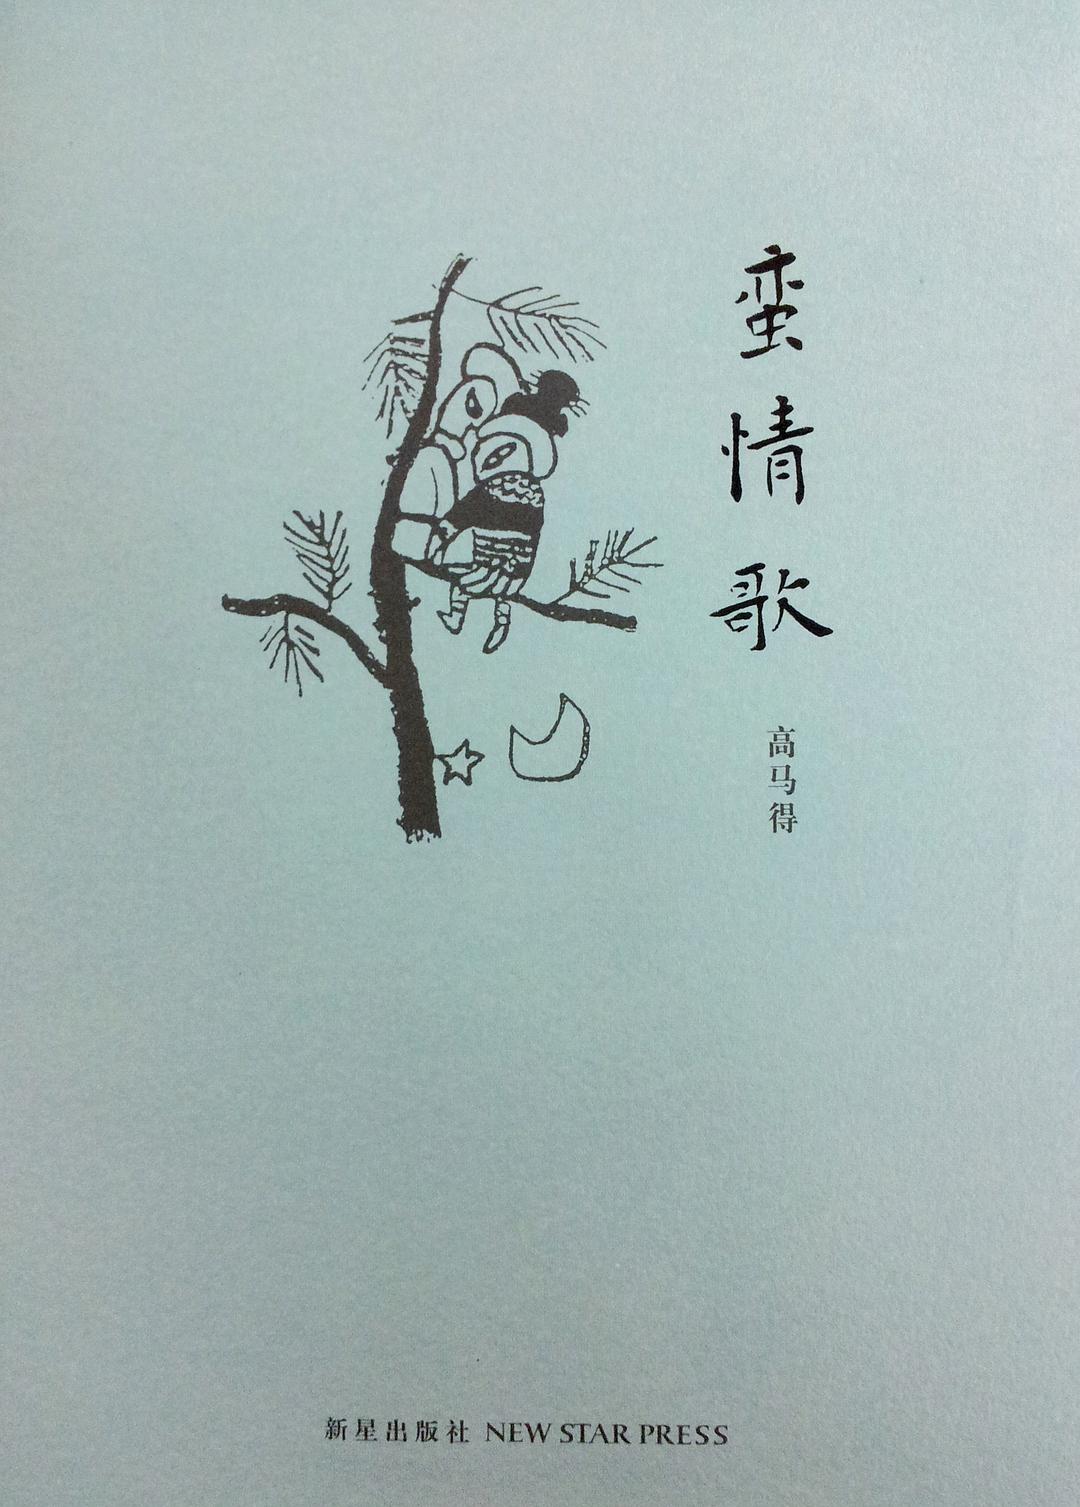 蛮情歌
高马得
新星出版社 NEW STAR PRESS